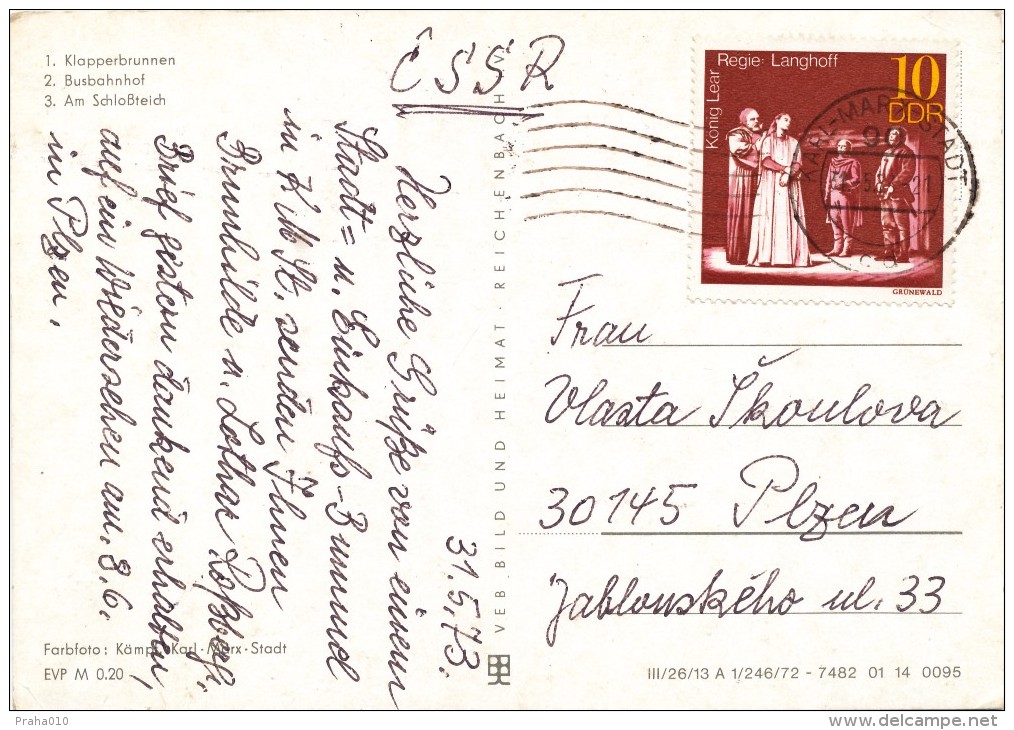 1. Klapperbrunnen
2. Busbahnhof
3. Am Schloßteich
ČSSR
31.5.73.
Herzliche Grüße von einem
Stadt= u. Einkaufs-Bummel
in K.M.St. senden Ihnen
Brunhilde u. Lothar
Brief gestern dankend erhalten,
auf ein Wiedersehen am. 8.6.
in Plzen.
Farbfoto: Kämpf, Karl-Marx-Stadt
EVP M 0.20
VEB BILD UND HEIMAT · REICHENBACH
König Lear
Regie: Langhoff
10
DDR
GRÜNEWALD
KARL-MARX-STADT
Frau
Vlasta Škoulova
30145 Plzen
Jablonského ul. 33
III/26/13 A 1/246/72 - 7482 01 14 0095
Praha010
www.delcampe.net